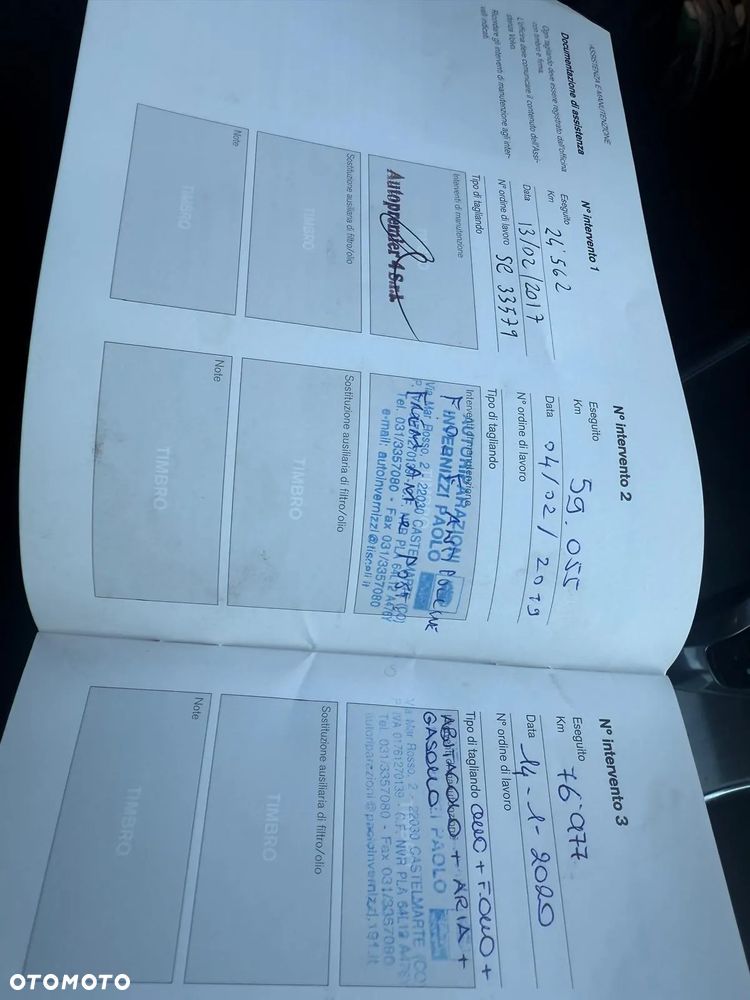 ASSISTENZA E MANUTENZIONE
Documentazione di assistenza
Ogni tagliando deve essere registrato dall'officina
con timbro e firma.
L'officina deve comunicare il contenuto dell'Assi-
stenza Volvo.
Ricordare gli interventi di manutenzione agli inter-
valli indicati.
N° intervento 1
Eseguito
Km 24'562
Data 13/02/2017
N° ordine di lavoro SC 33579
Tipo di tagliando
Interventi di manutenzione
Autopremier 4 S.r.l.
Sostituzione ausiliaria di filtro/olio
TIMBRO
Note
TIMBRO
N° intervento 2
Eseguito
Km 59.055
Data 04/02/2019
N° ordine di lavoro
Tipo di tagliando
Interventi di manutenzione
AUTORIPARAZIONI
INVERNIZZI PAOLO
Via Mar Rosso, 2 - 22030 CASTELMARTE (CO)
Tel. 031/3357080 - Fax 031/3357080
e-mail: autoinvernizzi@tiscali.it
FRENI ANT POST
Sostituzione ausiliaria di filtro/olio
TIMBRO
Note
TIMBRO
N° intervento 3
Eseguito
Km 76'977
Data 14-1-2020
N° ordine di lavoro
Tipo di tagliando OLIO + F.OLIO +
ABITACOLO + ARIA +
GASOLIO
PAOLO
Via Mar Rosso, 2 - 22030 CASTELMARTE (CO)
P.IVA 01761270139 - C.F. NVR PLA 64L12
Tel. 031/3357080 - Fax 031/3357080
Sostituzione ausiliaria di filtro/olio
TIMBRO
Note
TIMBRO
OTOMOTO